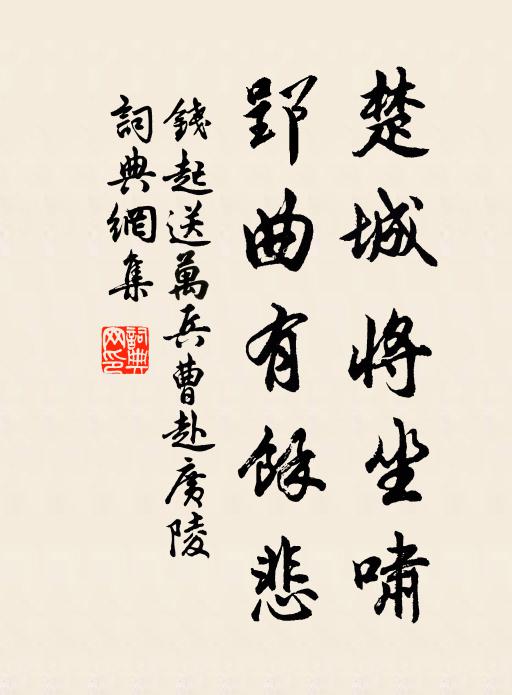 楚城将坐嘯
郢曲有餘悲
錢起送萬兵曹赴廣陵
詞典網集
詞典网印